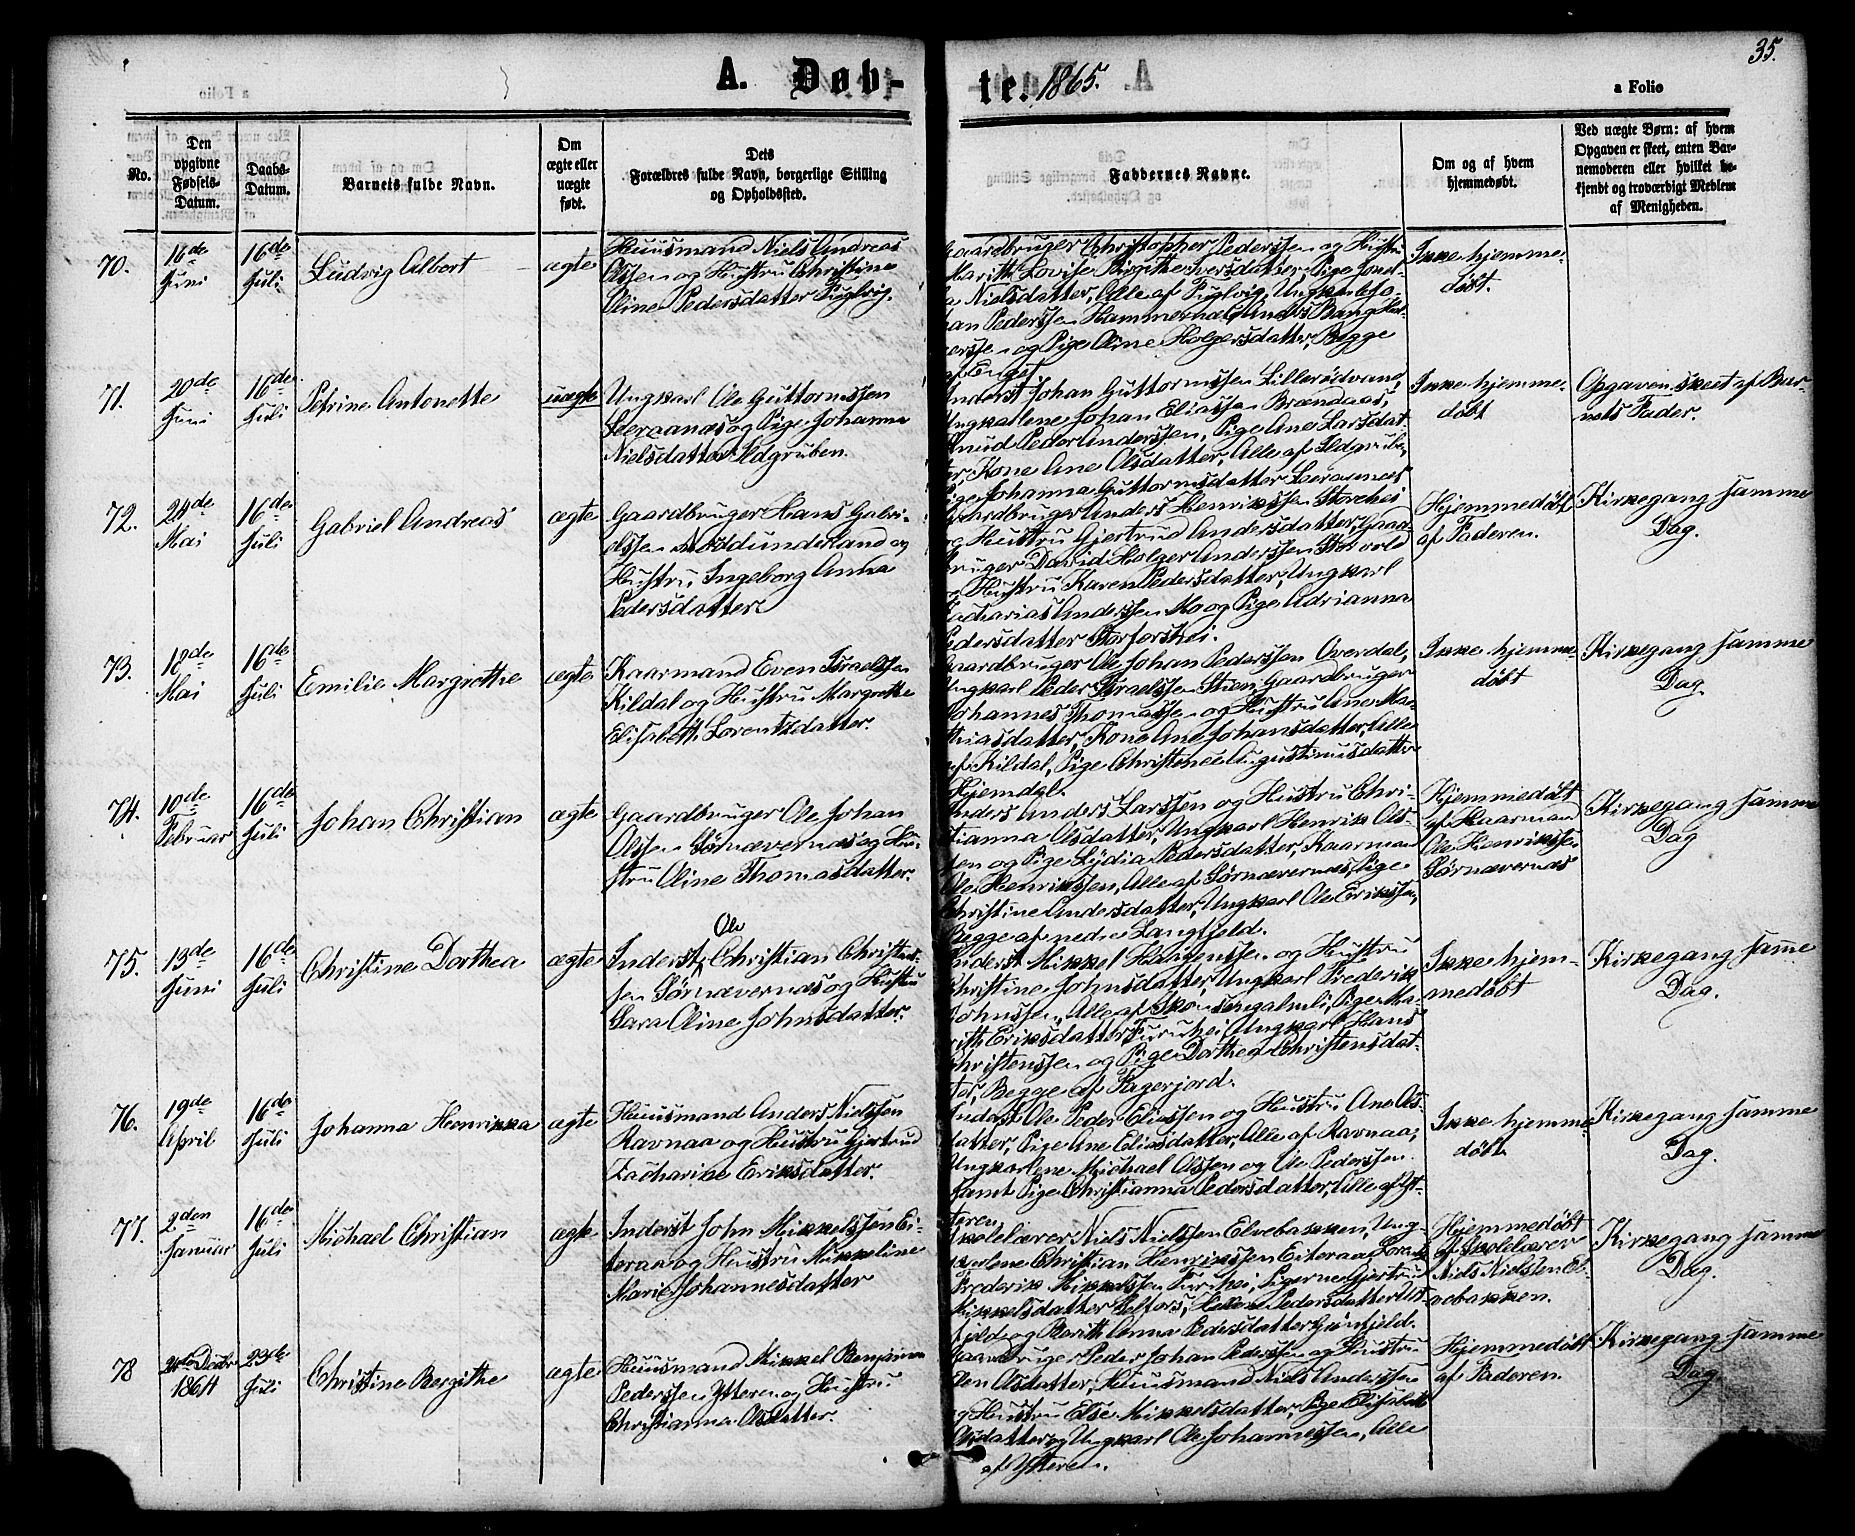 35.
A. Døb-
te. 1865.
a Folio
No.
Den
opgivne
Fødsels-
Datum.
Daabs-
Datum.
Barnets fulde Navn.
Om
ægte eller
uægte
født.
Dets
Forældres fulde Navn, borgerlige Stilling
og Opholdssted.
Faddernes Navne.
Om og af hvem
hjemmedøbt.
Ved uægte Børn: af hvem
Opgaven er skeet, enten Bar-
nemoderen eller hvilket be-
kjendt og troværdigt Medlem
af Menigheden.
70.
16de
Juni
16de
Juli
Ludvig Albert
ægte
Huusmand Niels Andreas
Olssen og Hustru Christine
Oline Pedersdatter Fuglvig.
Gaardbruger Christopher Pederssen og Hustru
Marith Lovise Birgithe Iversdatter, Pige
Nielsdatter, Alle af Fuglvig, Ungkarl Jo-
han Pederssen Bang Hol-
gerssen og Pige Oline Holgersdatter, Begge
af Enge.
Ikke hjemme-
døbt.
71.
20de
Juni
16de
Juli
Petrine Antonette
uægte
Ungkarl Ole Guttormssen
Leeraanæs og Pige Johanna
Nielsdatter Ildgruben.
Inderst Johan Guttormssen Lillerødvand,
Ungkarlene Johan Eliassen Brændaas,
Knud Peder Anderssen, Pige Ane Larsdat-
ter, Kone Ane Olsdatter, Alle af Ildgruben,
Pige Johanna Guttormsdatter Leeraanæs
Ikke hjemme-
døbt
Opgaven skeet af Bar-
nets Fader.
72.
24de
Mai
16de
Juli
Gabriel Andreas
ægte
Gaardbruger Hans Gabri-
elssen Norddunderland og
Hustru Ingeborg Anna
Pedersdatter.
Gaardbruger Anders Henrikssen Storehei
og Hustru Gjertrud Andersdatter, Gaard-
bruger David Holger Anderssen Storvold
og Hustru Karen Pedersdatter, Ungkarl
Zacharias Anderssen Mo og Pige Adrianna
Pedersdatter Storforshei.
Hjemmedøbt
af Faderen.
Kirkegang samme
Dag.
73.
18de
Mai
16de
Juli
Emilie Margrethe
ægte
Kaarmand Even Israelssen
Kildal og Hustru Margrethe
Elisabeth Lorentsdatter.
Gaardbruger Ole Johan Pederssen Overdal,
Ungkarl Peder Israelssen Stien, Gaardbruger
Johannes Thomassen og Hustru Ane Ma-
thiasdatter, Kone Ane Johansdatter, Alle
af Kildal, Pige Christence Augustinusdatter
Hjemdal.
Ikke hjemme-
døbt
Kirkegang samme
Dag.
74.
10de
Februar
16de
Juli
Johan Christian
ægte
Gaardbruger Ole Johan
Olssen Sørnævernæs og Hu-
stru Oline Thomasdatter.
Inders Anders Larssen og Hustru Chri-
stianna Olsdatter, Ungkarl Henrik Ols-
sen og Pige Lydia Pedersdatter, Kaarmand
Ole Henrikssen, Alle af Sørnævernæs, Pige
Christine Andersdatter, Ungkarl Ole Erikssen,
Begge af nedre Langfjeld.
Hjemmedøbt
af Kaarmand
Ole Henrikssen
Sørnævernæs
Kirkegang samme
Dag
75.
13de
Juni
16de
Juli
Christine Dorthea
ægte
Ole
Inderst Christian Christens-
sen Sørnævernæs og Hustru
Sara Oline Johnsdatter.
Inderst Mikkel Hansenssen og Hustru
Christine Johnsdatter, Ungkarl Frederik
Johnssen, Alle af Skonsengalmli, Pige Ma-
rith Eriksdatter Furuhei, Ungkarl Hans
Christenssen og Pige Dorthea Christensdat-
ter, Begge af Fagerjord.
Ikke hjem-
medøbt
Kirkegang samme
Dag.
76.
19de
April
16de
Juli
Johanna Henrikka
ægte
Huusmand Anders Nielssen
Ravnaa og Hustru Gjertrud
Zacharine Eriksdatter.
Inderst Ole Peder Eliassen og Hustru Ane Ols-
datter, Pige Ane Eliasdatter, Alle af Ravnaa,
Ungkarlene Michael Olssen og Ole Pederssen
samt Pige Christianna Pedersdatter, Alle af Yt-
teren.
Ikke hjemme-
døbt.
Kirkegang samme
Dag.
77.
2den
Januar
16de
Juli
Michael Christian
ægte
Inderst John Mikkelssen Ei-
teraa og Hustru Mikkeline
Marie Johannesdatter
Skolelærer Niels Nielssen Elvebakken, Ung-
karlene Christian Henrikssen Eiteraa, Lorents
Frederik Mikkelssen Furuhei, Pigerne Gjertrud
Mikkelsdatter Selfors, Helene Pedersdatter
og Berith Anna Pedersdatter Grønfjeld.
Hjemmedøbt
af Skolelærer
Niels Nielssen El-
vebakken.
Kirkegang samme
Dag.
78
1864
23de
Juli
Christine Bergithe
ægte
Huusmand Mikkel Benjamin
Pederssen Ytteren og Hustru
Christianna Olsdatter.
Gaardbruger Peder Johan Pederssen og Hustru
Ellen Olsdatter, Huusmand Niels Anderssen
og Hustru Else Mikkelsdatter, Pige Elisabeth
Olsdatter og Ungkarl Ole Johannessen, Alle
af Ytteren.
Hjemmedøbt
af Faderen.
Kirkegang samme
Dag.